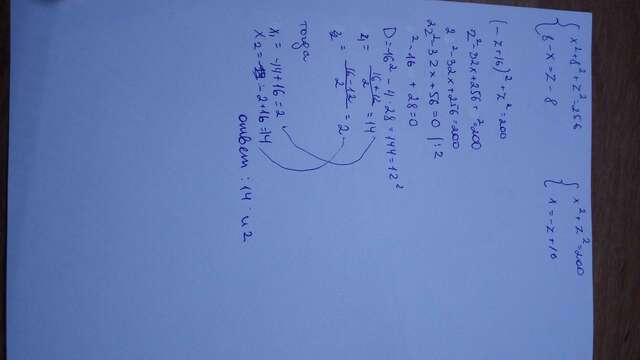 x²+8²+z²=256
8-x=z-8
x²+z²=200
x=-z+16
(-z+16)²+z²=200
z²-32x+256+z²=200
2z²-32x+256=200
2z²-32x+56=0 |:2
z²-16 +28=0
D=16²-4·28=144=12²
z₁= (16+12)/2 =14
z= (16-12)/2 =2
тогда
x₁=-14+16=2
x₂= -2+16=14
ответ: 14 и 2